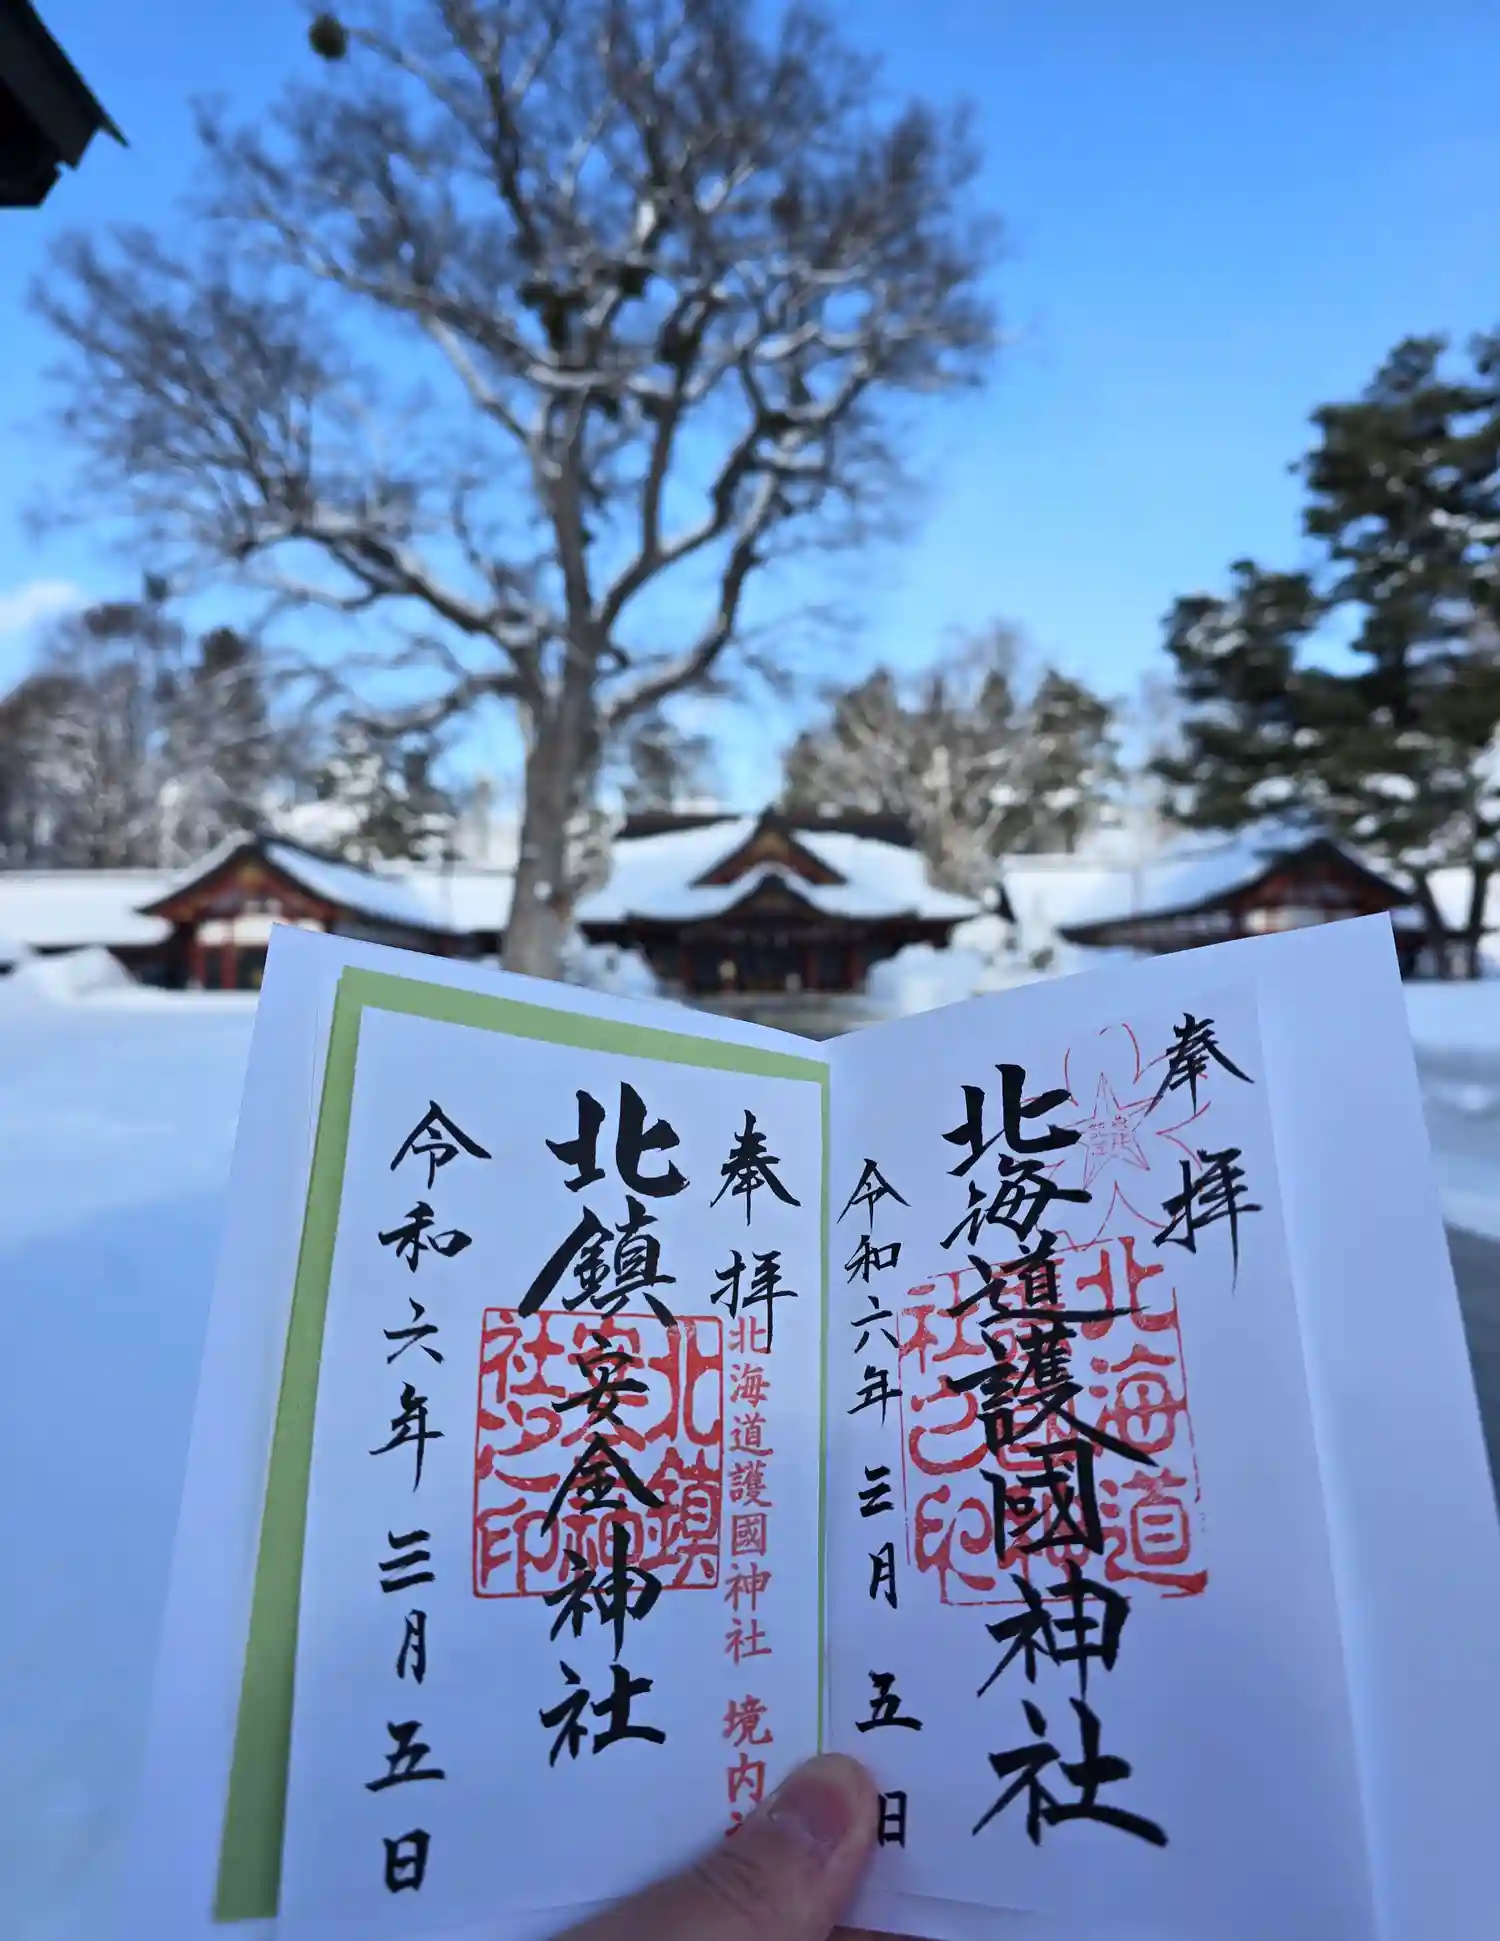 奉拝
北海道
護國神
社之印
北海道護國神社
令和六年三月五日
奉拝
北海道護國神社 境内
北鎮
安全神
社之印
北鎮安全神社
令和六年三月五日